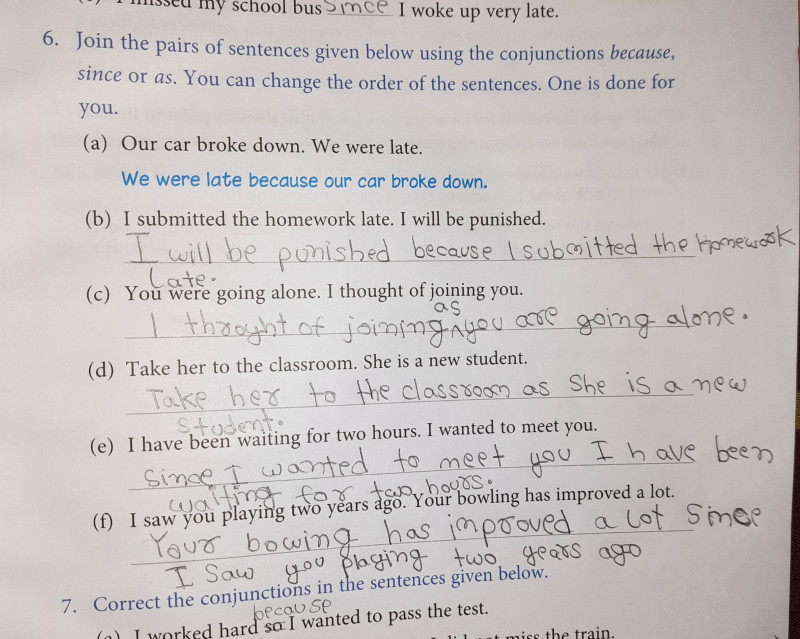 missed my school bus Since I woke up very late.
6. Join the pairs of sentences given below using the conjunctions because,
since or as. You can change the order of the sentences. One is done for
you.
(a) Our car broke down. We were late.
We were late because our car broke down.
(b) I submitted the homework late. I will be punished.
I will be punished because I submitted the homework
late.
(c) You were going alone. I thought of joining you.
as
I throught of joining you are going alone.
(d) Take her to the classroom. She is a new student.
Take her to the classroom as She is a new
Student.
(e) I have been waiting for two hours. I wanted to meet you.
Since I wanted to meet you I have been
waiting for two hours.
(f) I saw you playing two years ago. Your bowling has improved a lot.
Your bowing has improved a lot Since
I Saw you playing two years ago
7. Correct the conjunctions in the sentences given below.
because
(a) I worked hard so I wanted to pass the test.
miss the train.